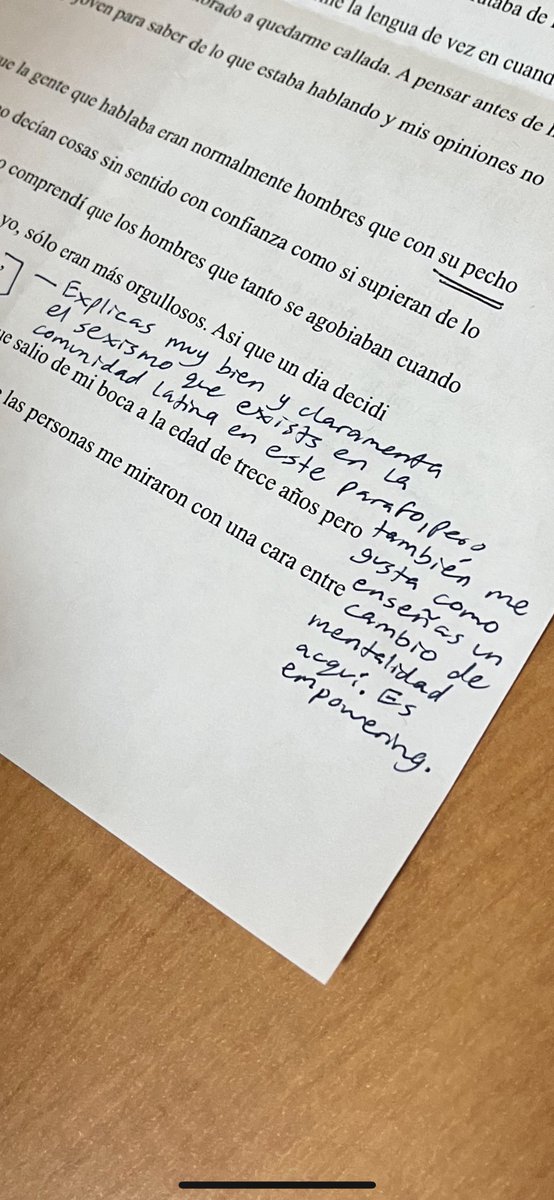 la lengua de vez en cuand
a quedarme callada. A pensar antes de
joven para saber de lo que estaba hablando y mis opiniones no
la gente que hablaba eran normalmente hombres que con su pecho
decían cosas sin sentido con confianza como si supieran de lo
comprendí que los hombres que tanto se agobiaban cuando
yo, sólo eran más orgullosos. Asi que un dia decidi
salio de mi boca a la edad de trece años pero
las personas me miraron con una cara entre
- Explicas muy bien y claramenta
el sexismo que exists en la
comunidad latina en este parafo, pero
también me
gusta como
enseñas un
cambio de
mentalidad
acquí. Es
empowering.